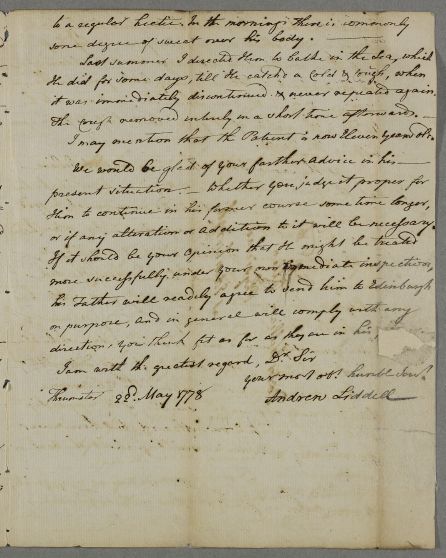 to a regular hectic. In the mornings there is commonly
some degree of sweat over his body. —
Last summer I directed Him to bathe in the Sea, which
He did for some days, till He catch'd a Cold & Cough, when
it was immediately discontinued & never repeated again.
The cough removed entirely in a short time afterward. —
I may mention that the Patient is now Eleven years old.
We would be glad of your farther advice in his —
present situation. — Whether you judge it proper for
Him to continue in his former course some time longer,
or if any alteration or addition to it will be necessary.
If it should be your Opinion that He might be treated
more successfully under your own immediate inspection,
his Father will readily agree to send him to Edinburgh
on purpose, and in general will comply with any
direction, you think fit as far as they are in his
I am with the greatest regard, Dr. Sir
your most obt. humble Servt.
22d. May 1778 Andrew Liddell